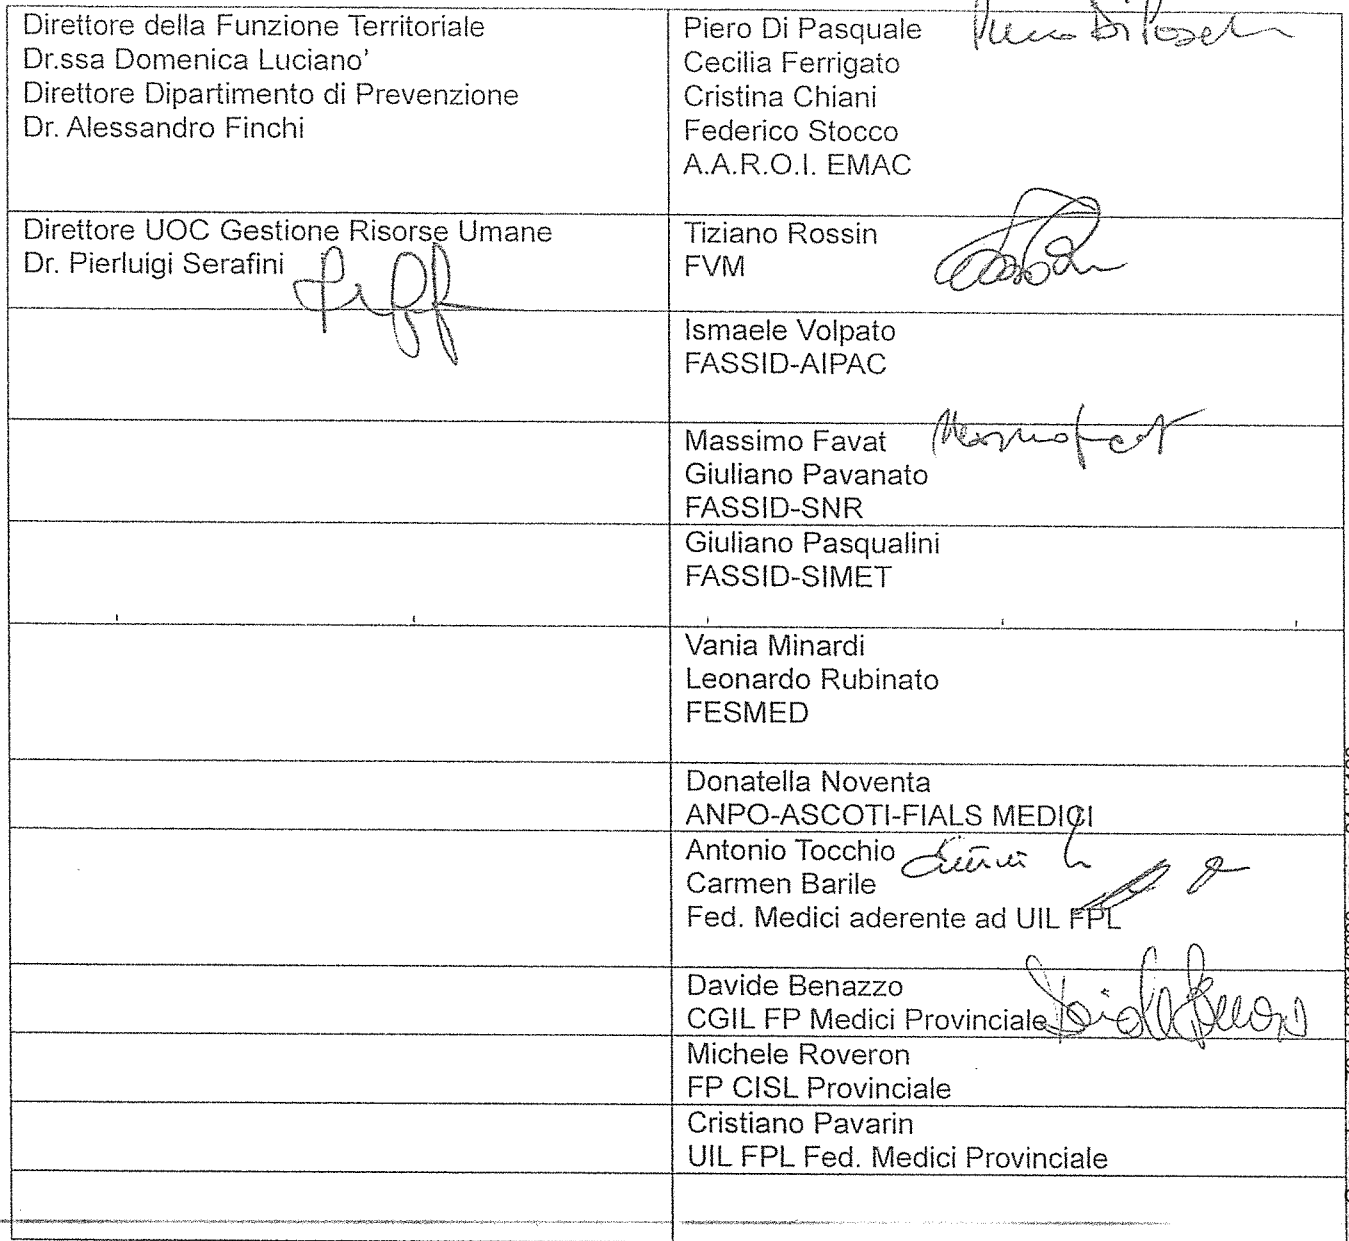 Direttore della Funzione Territoriale
Dr.ssa Domenica Luciano'
Direttore Dipartimento di Prevenzione
Dr. Alessandro Finchi
Piero Di Pasquale
Cecilia Ferrigato
Cristina Chiani
Federico Stocco
A.A.R.O.I. EMAC
Direttore UOC Gestione Risorse Umane
Dr. Pierluigi Serafini
Tiziano Rossin
FVM
Ismaele Volpato
FASSID-AIPAC
Massimo Favat
Giuliano Pavanato
FASSID-SNR
Giuliano Pasqualini
FASSID-SIMET
Vania Minardi
Leonardo Rubinato
FESMED
Donatella Noventa
ANPO-ASCOTI-FIALS MEDICI
Antonio Tocchio
Carmen Barile
Fed. Medici aderente ad UIL FPL
Davide Benazzo
CGIL FP Medici Provinciale
Michele Roveron
FP CISL Provinciale
Cristiano Pavarin
UIL FPL Fed. Medici Provinciale